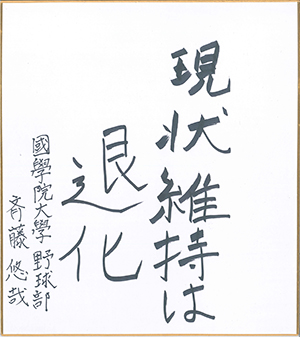 現状維持は
退化
國學院大學 野球部
斉藤 悠哉